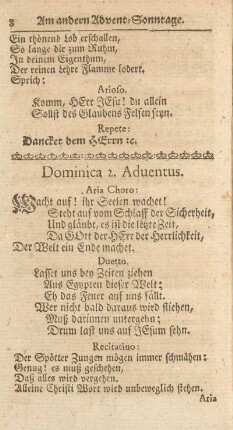 8 Am andern Advent-Sonntage.
Ein thönend Lob erschallen,
So lange dir zum Ruhm,
In deinem Eigenthum,
Der reinen Lehre Flamme lodert.
Sprich:
Arioso.
Komm, HErr JEsu! du allein
Sollst des Glaubens Felsen seyn.
Repete:
Dancket dem HErrn ꝛc.
Dominica 2. Aduentus.
Aria Choro:
Wacht auf! ihr Seelen wachet!
Steht auf vom Schlaff der Sicherheit,
Und gläubt, es ist die letzte Zeit,
Da GOtt der HErr der Herrlichkeit,
Der Welt ein Ende machet.
Duetto.
Lasset uns bey Zeiten ziehen
Aus Egypten dieser Welt;
Eh das Feuer auf uns fällt.
Wer nicht bald daraus wird fliehen,
Muß darinnen untergehn;
Drum last uns auf JEsum sehn.
Recitatiuo:
Der Spötter Zungen mögen immer schmähen:
Genug! es muß geschehen,
Daß alles wird vergehen.
Alleine Christi Wort wird unbeweglich stehen.
Aria